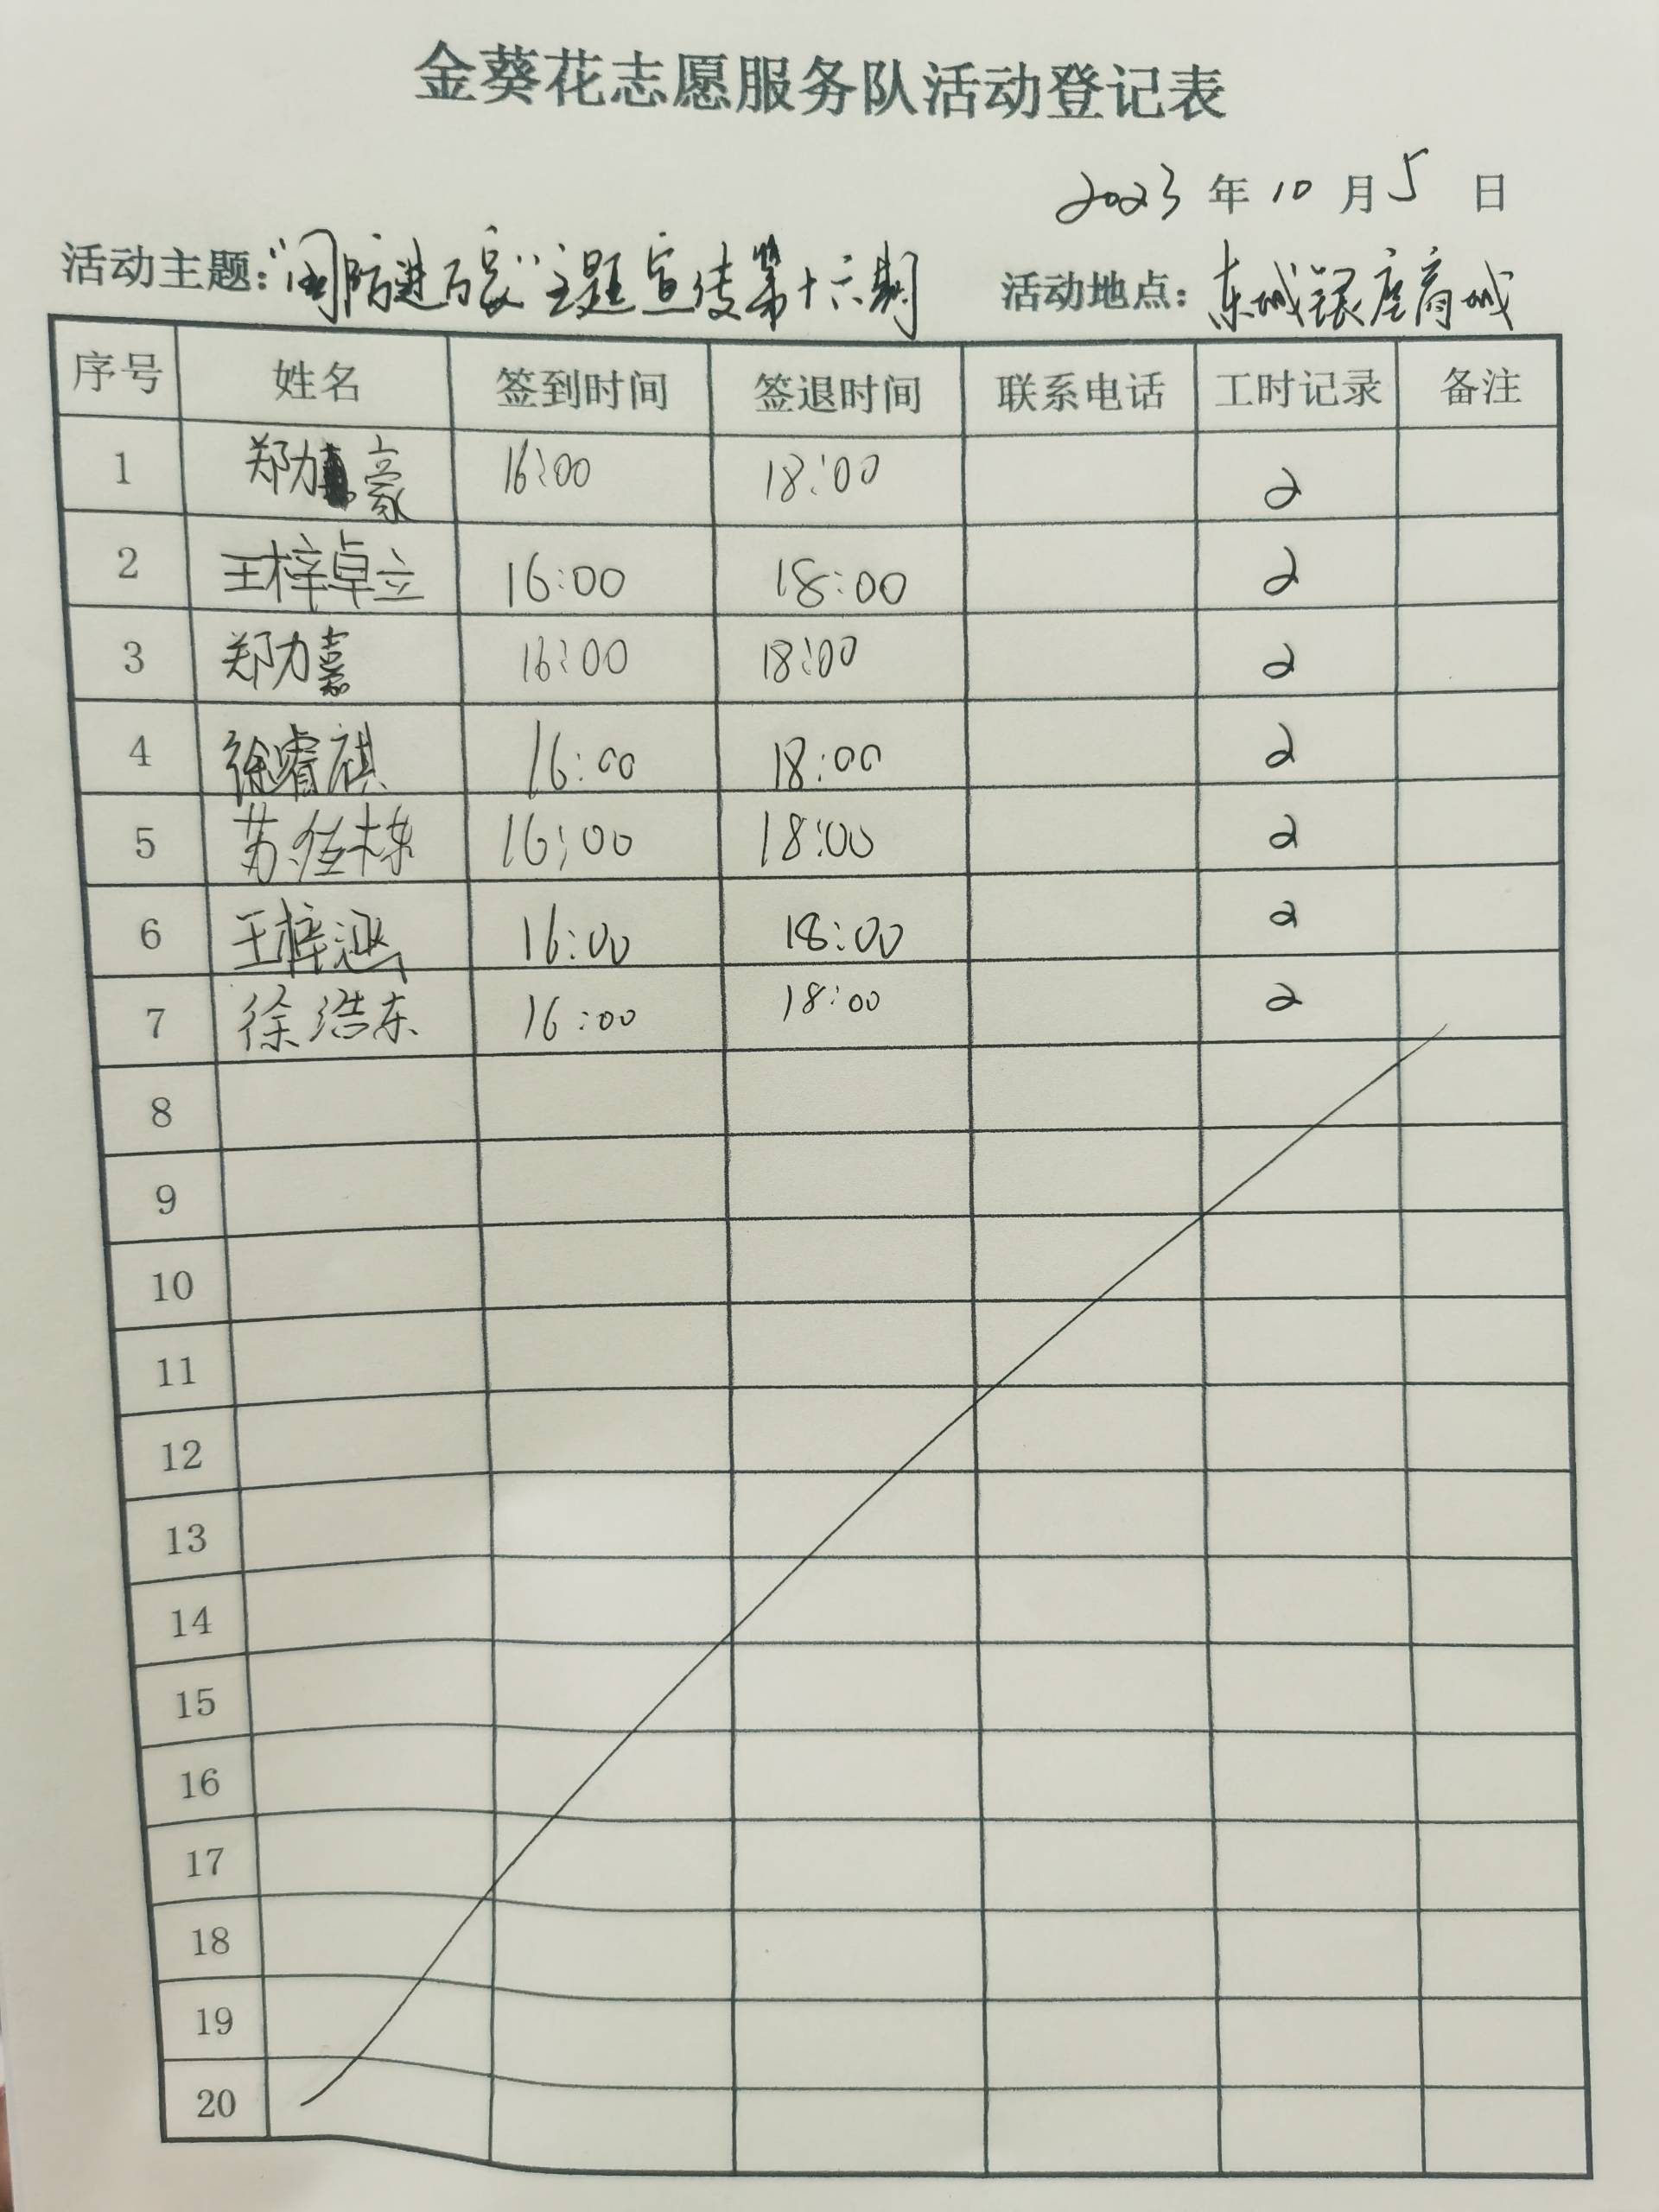 金葵花志愿服务队活动登记表
2023年10月5日
活动主题:“国防进百家”主题宣传第十六期 活动地点:东城银座商城
序号 姓名 签到时间 签退时间 联系电话 工时记录 备注
1 郑力豪 16:00 18:00 2
2 王梓卓立 16:00 18:00 2
3 郑力嘉 16:00 18:00 2
4 徐睿祺 16:00 18:00 2
5 苏 16:00 18:00 2
6 王梓涵 16:00 18:00 2
7 徐浩东 16:00 18:00 2
8
9
10
11
12
13
14
15
16
17
18
19
20